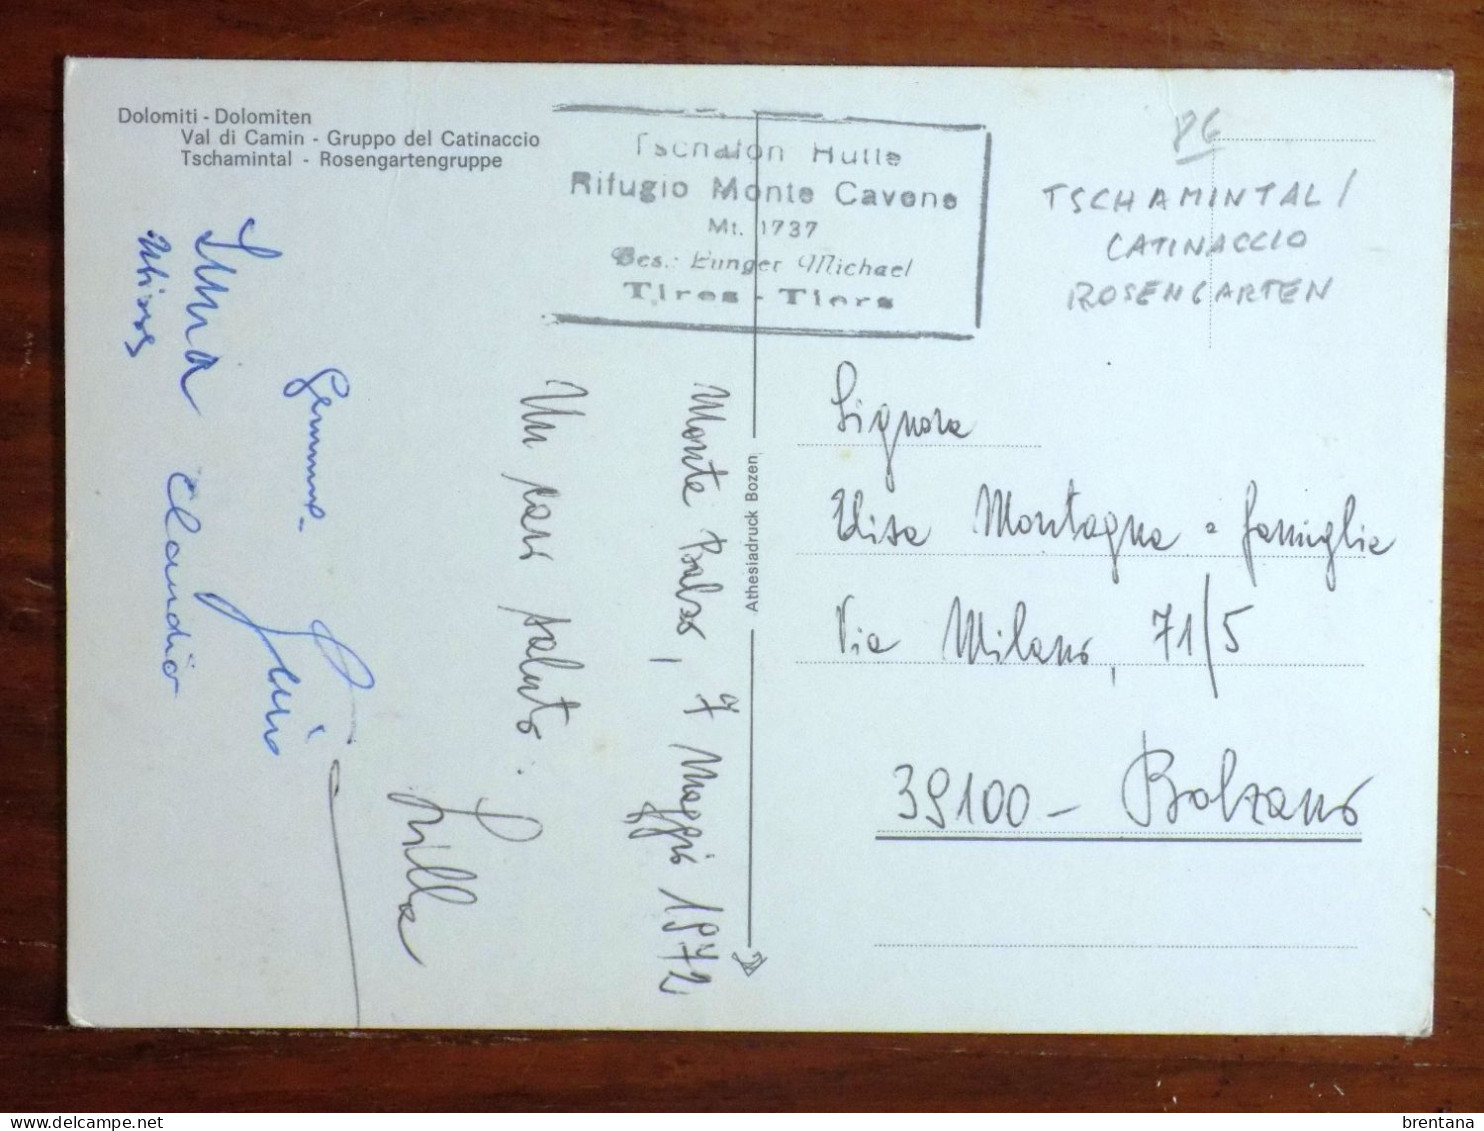 Dolomiti - Dolomiten
Val di Camin - Gruppo del Catinaccio
Tschamintal - Rosengartengruppe
Tschafon Hütte
Rifugio Monte Cavone
Mt. 1737
Bes.: Michael
Tires - Tiers
86
TSCHAMINTAL /
CATINACCIO
ROSENGARTEN
Monte Balzo, 7 Maggio 1972
Un caro saluto.
Lilla
Claudio
Athesiadruck Bozen
Signora
Elisa Montagna e famiglia
Via Milano, 71/5
39100 - Bolzano
brentana